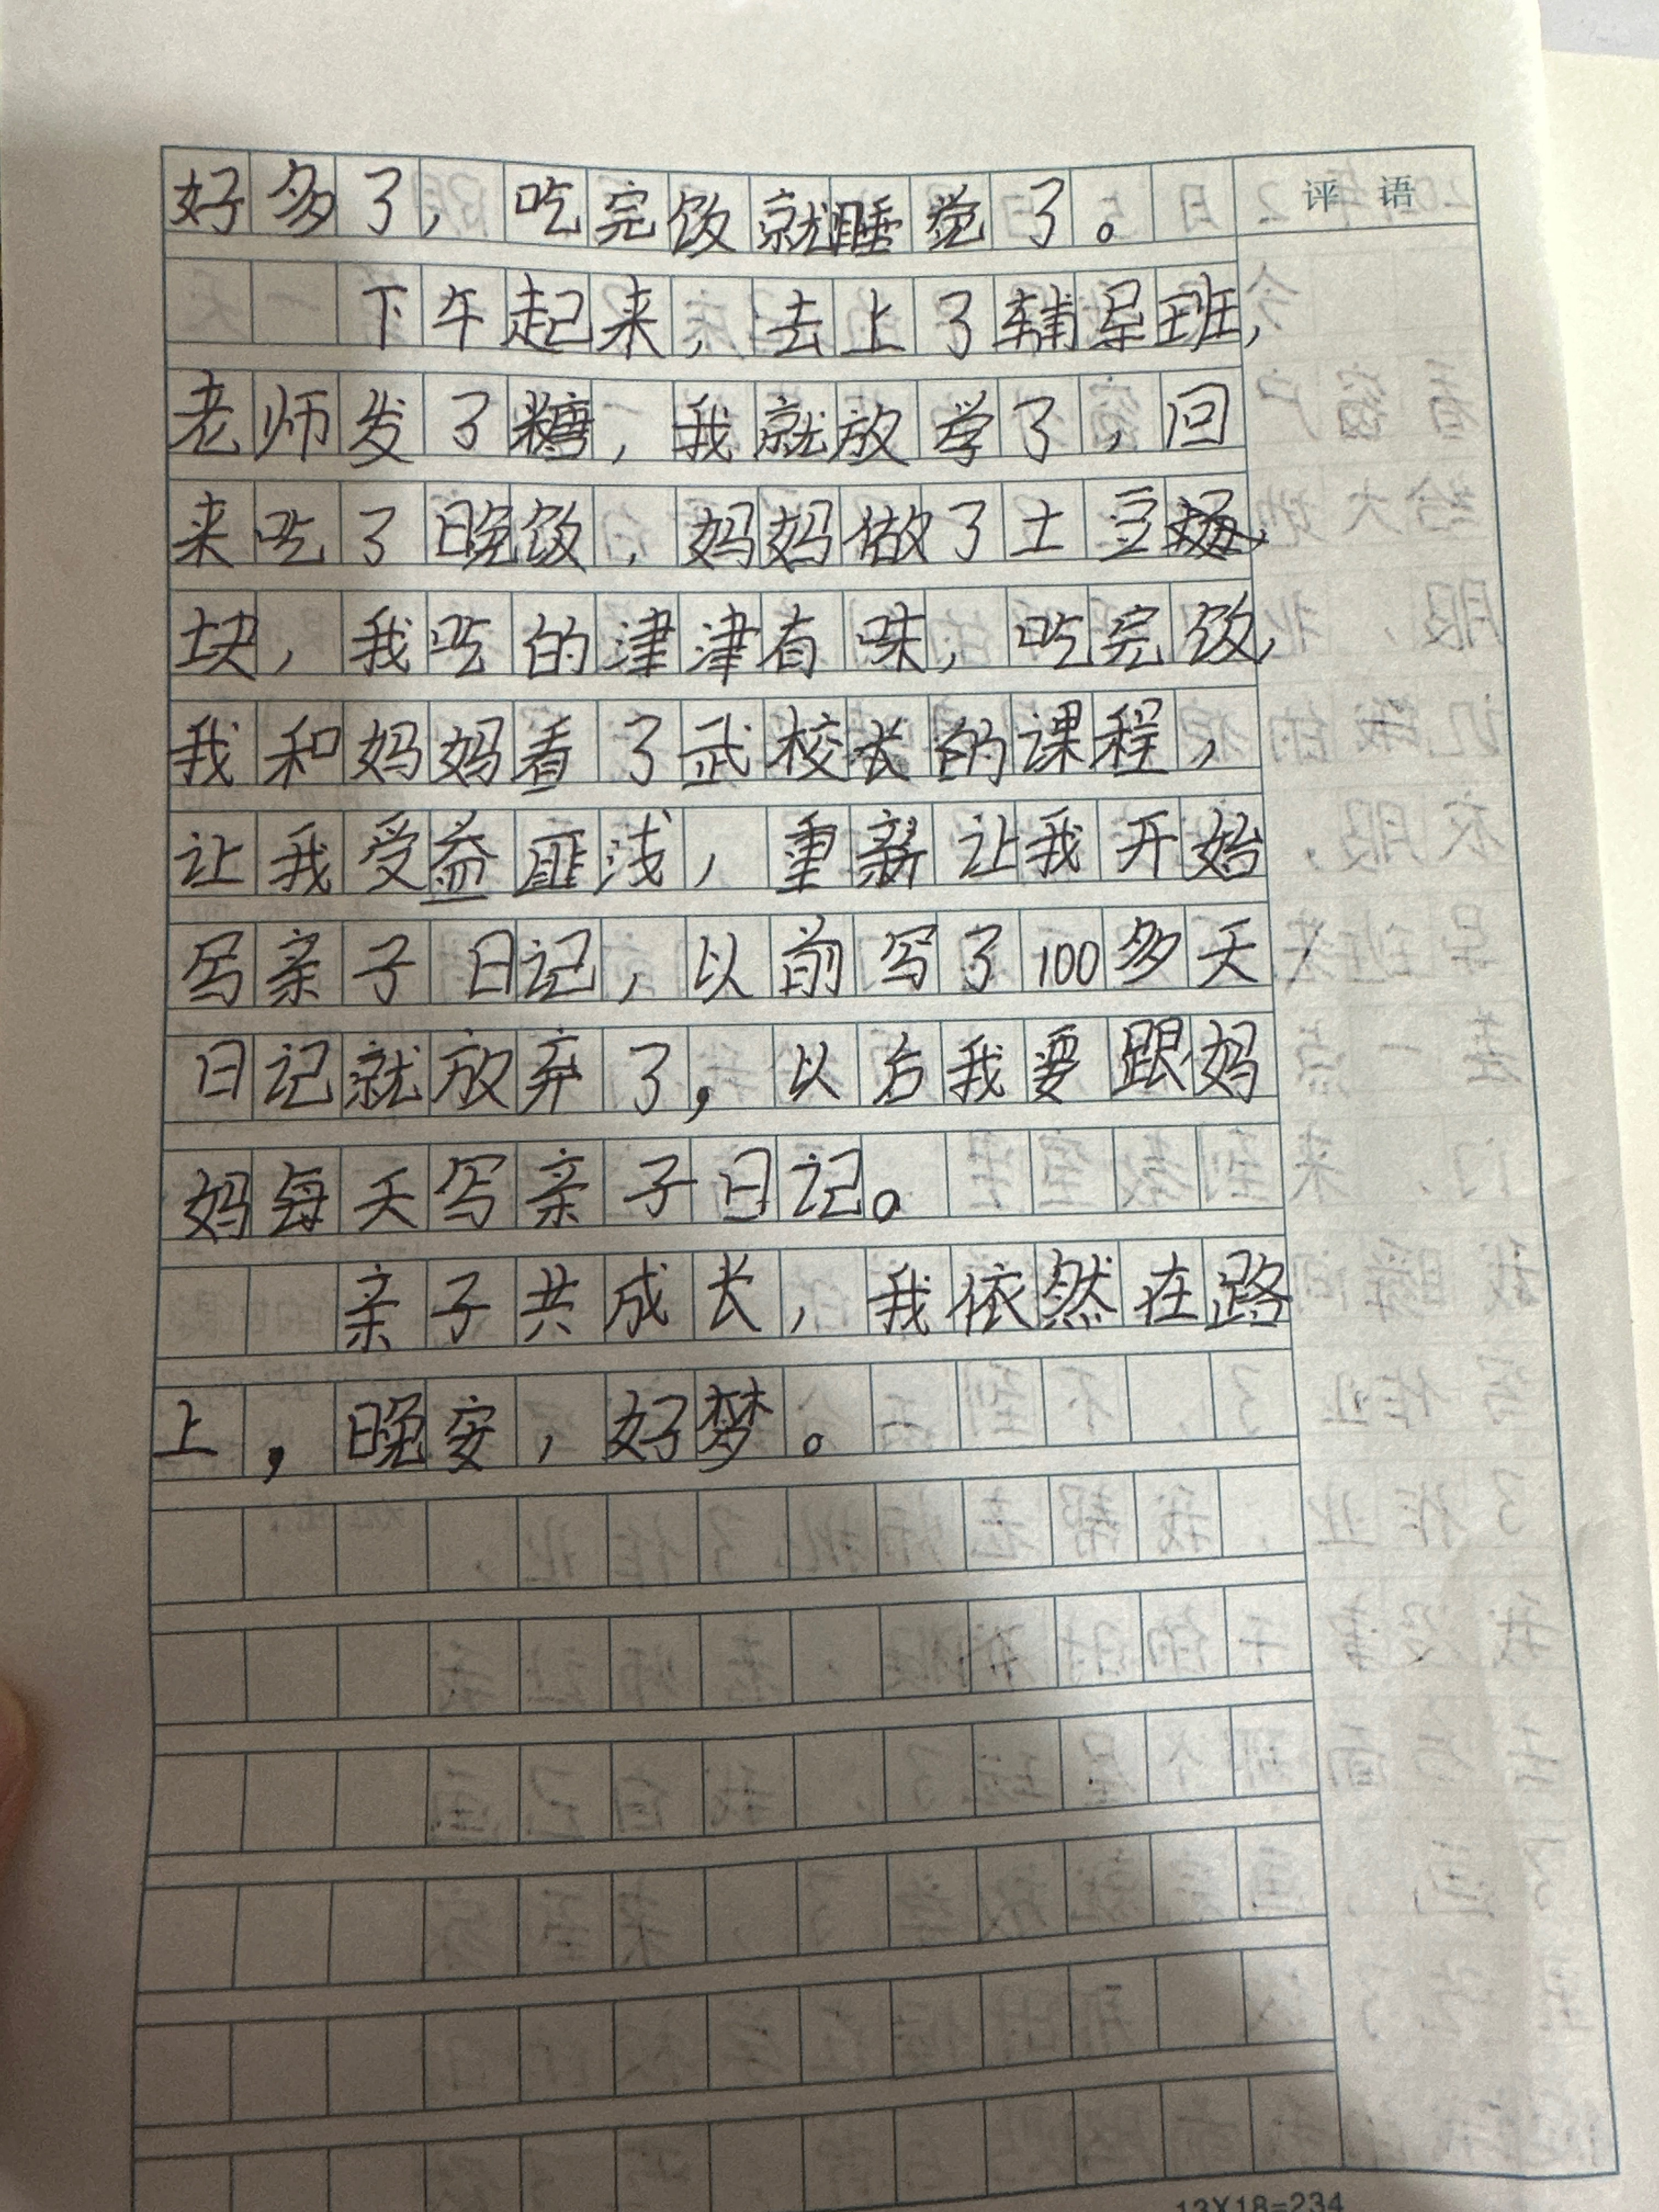 好多了，吃完饭就睡觉了。
评语
下午起来，去上了辅导班，
老师发了糖，我就放学了，回
来吃了晚饭，妈妈做了土豆
块，我吃的津津有味，吃完饭，
我和妈妈看了武校长的课程，
让我受益匪浅，重新让我开始
写亲子日记，以前写了100多天
日记就放弃了，以后我要跟妈
妈每天写亲子日记。
亲子共成长，我依然在路
上，晚安，好梦。
13X18=234